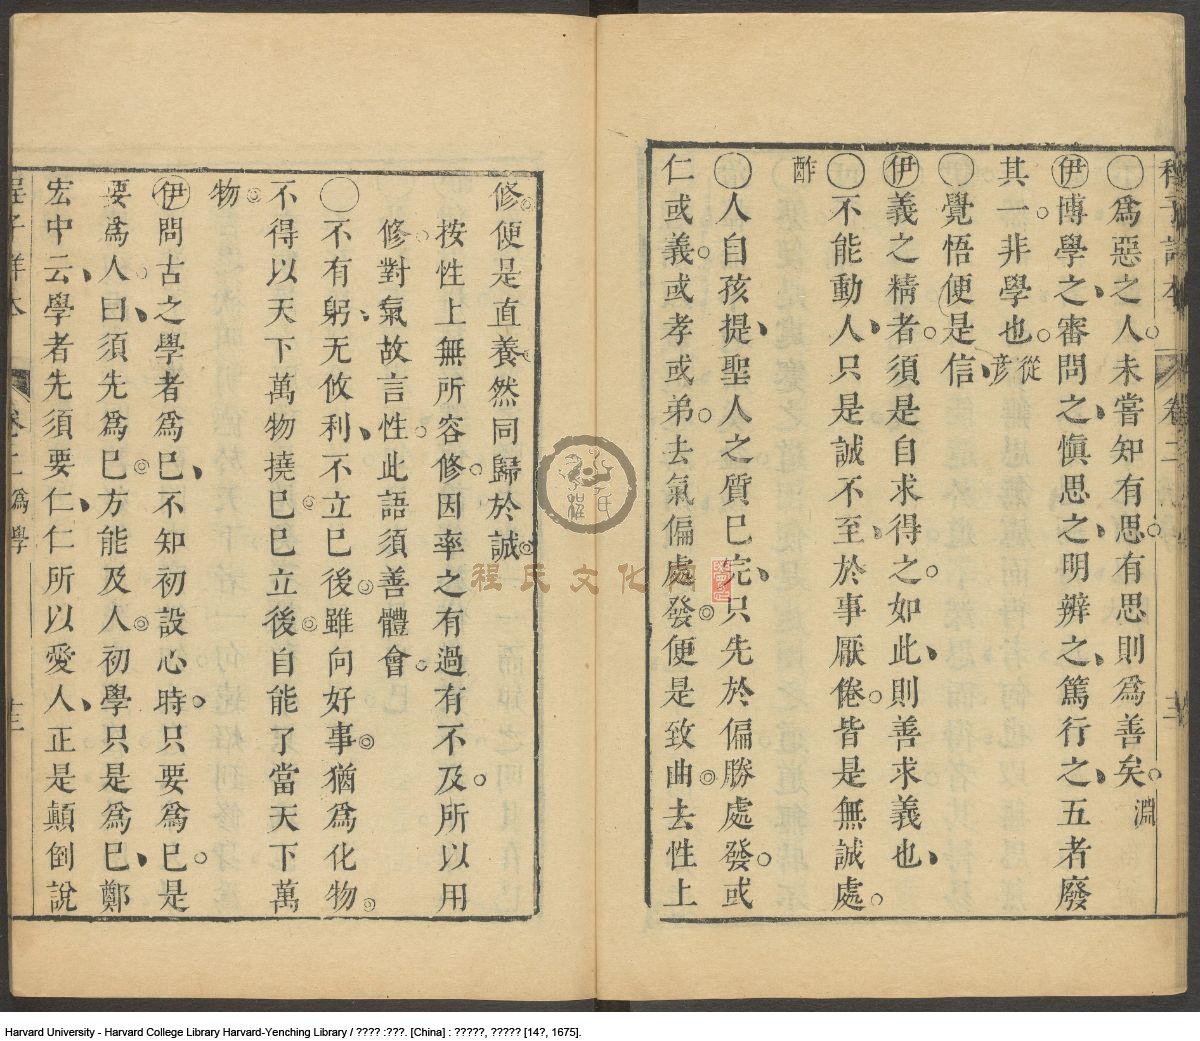 爲惡之人未嘗知有思有思則爲善矣 淵
伊博學之審問之愼思之明辨之篤行之五者廢
其一非學也 從彥
覺悟便是信
伊義之精者須是自求得之如此則善求義也
不能動人只是誠不至於事厭倦皆是無誠處
酢
人自孩提聖人之質已完只先於偏勝處發或
仁或義或孝或弟去氣偏處發便是致曲去性上
修便是直養然同歸於誠
按性上無所容修因率之有過有不及所以用
修對氣故言性此語須善體會
不有躬无攸利不立己後雖向好事猶爲化物
不得以天下萬物撓己己立後自能了當天下萬
物
伊問古之學者爲己不知初設心時只要爲己是
要爲人曰須先爲己方能及人初學只是爲己鄭
宏中云學者先須要仁仁所以愛人正是顛倒說
卷二 爲學
十三
程氏文化
Harvard University - Harvard College Library Harvard-Yenching Library / ???? :???. [China] : ?????, ????? [14?, 1675].